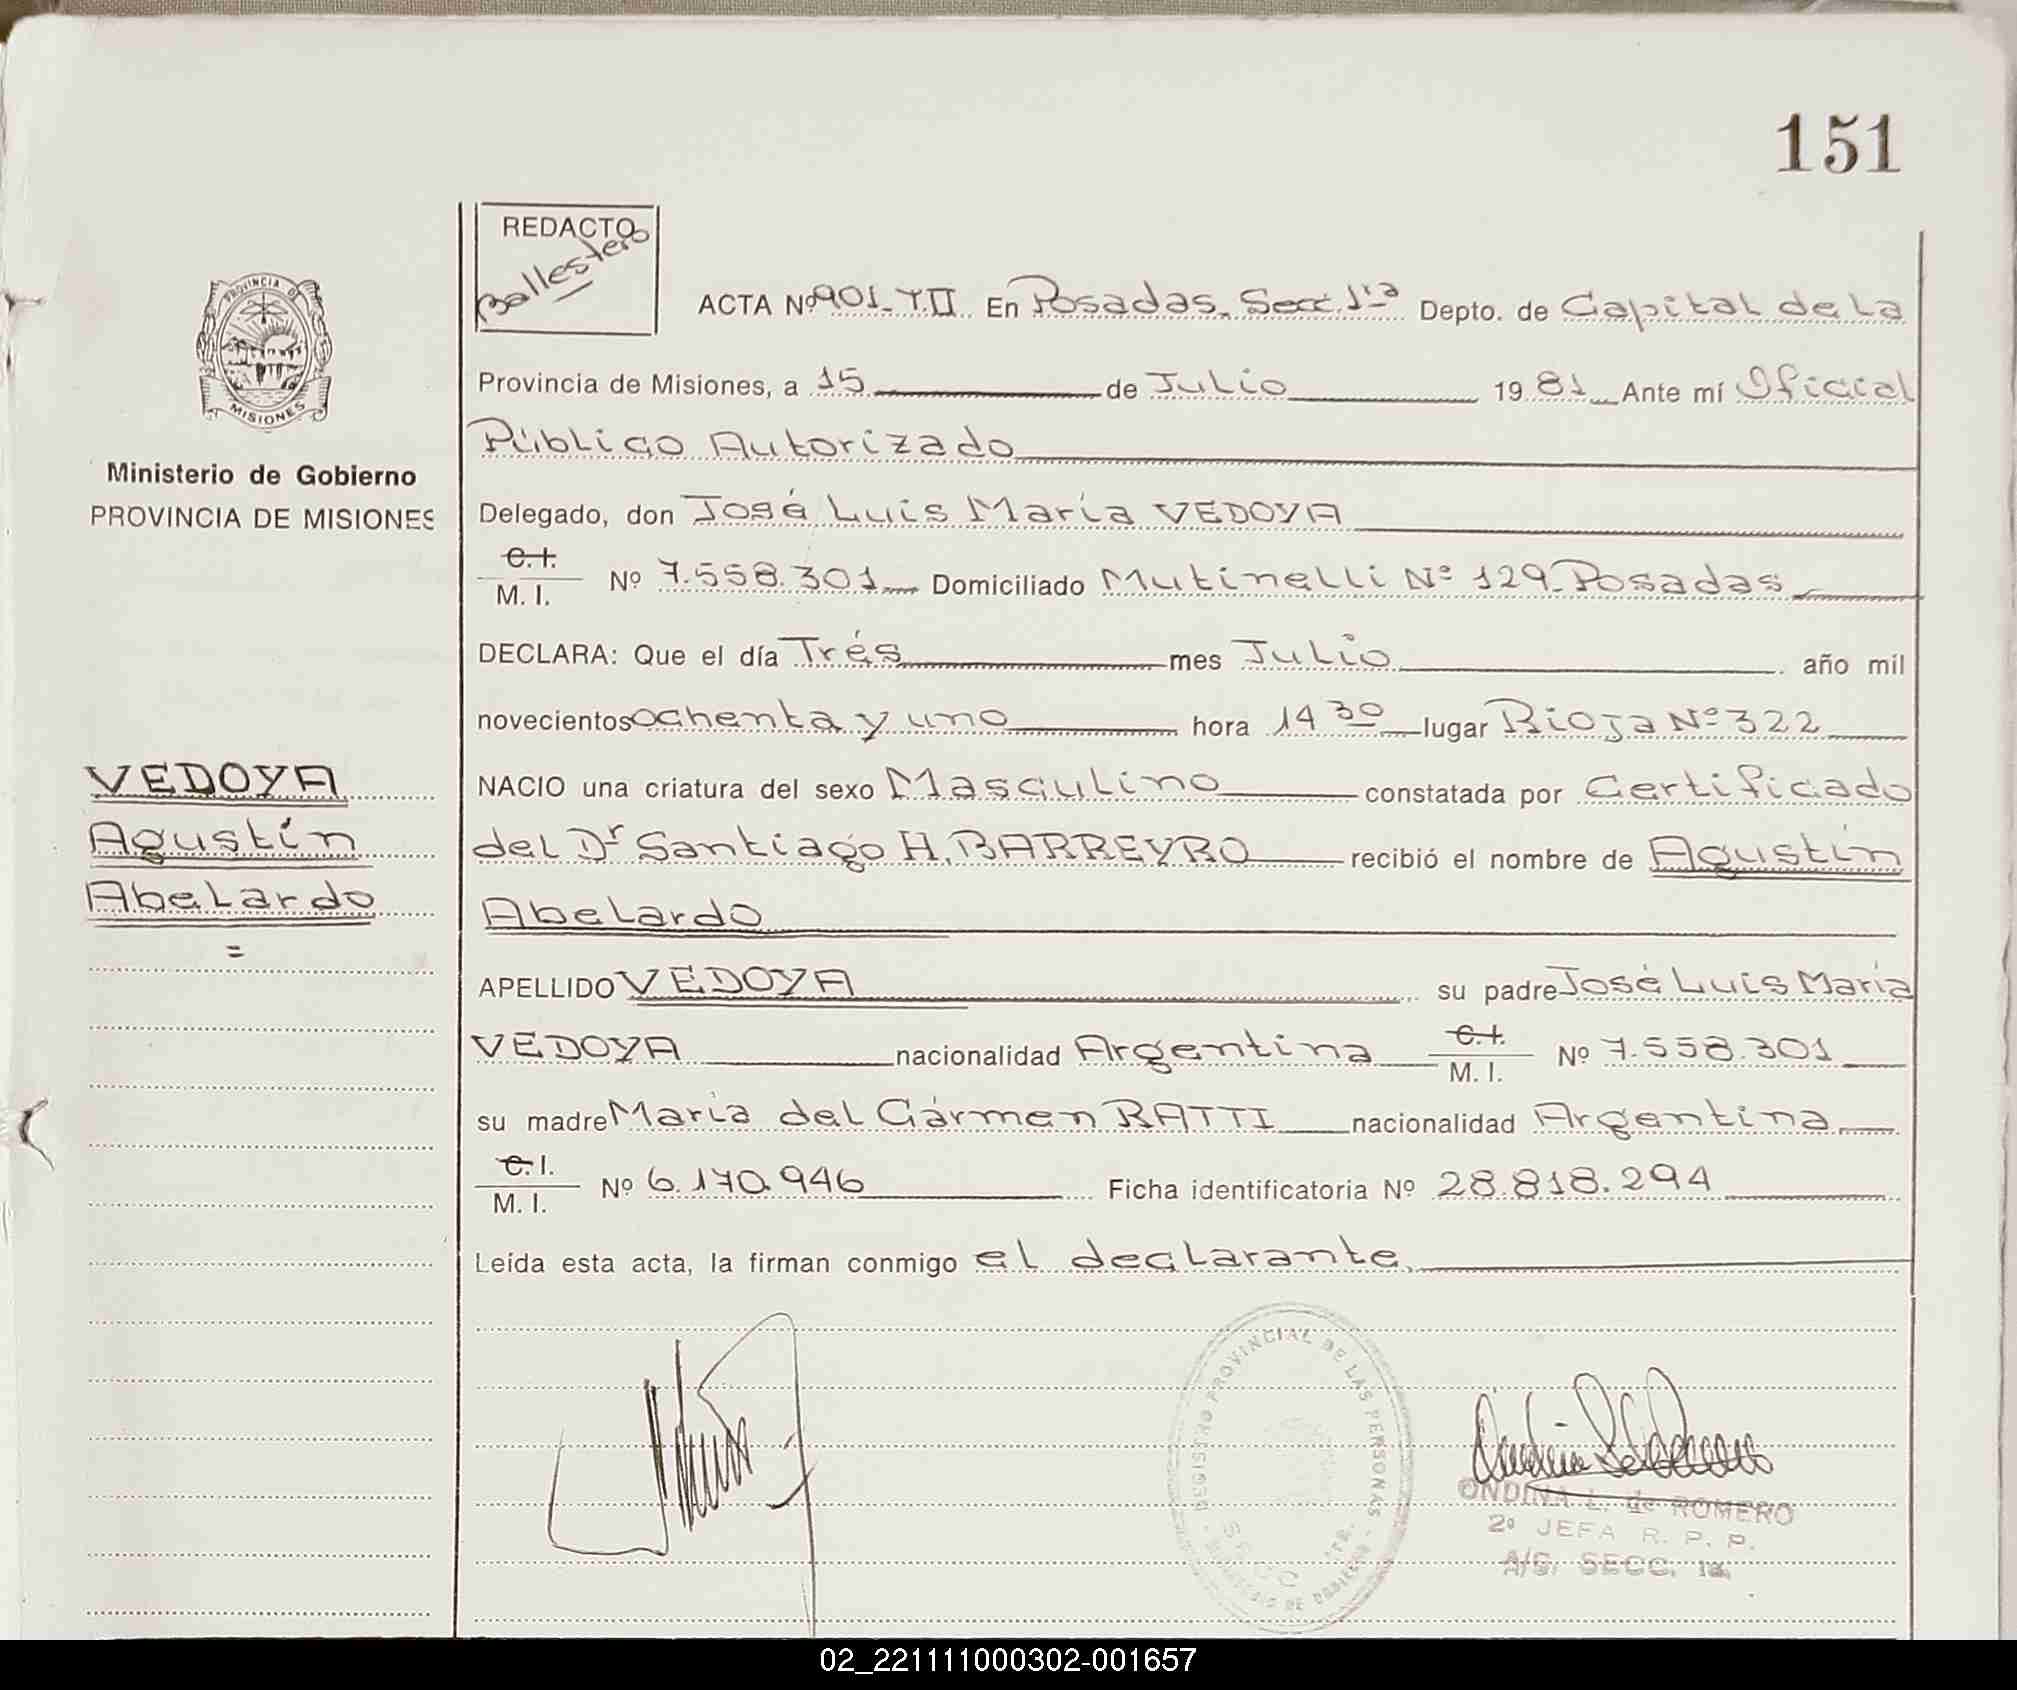 151
REDACTO
Ballestero
PROVINCIA DE
MISIONES
Ministerio de Gobierno
PROVINCIA DE MISIONES
VEDOYA
Agustín
Abelardo
=
ACTA Nº 901-T.II En Posadas, Secc. 1ra Depto. de Capital de La
Provincia de Misiones, a 15 de Julio 1981 Ante mí Oficial
Público Autorizado
Delegado, don José Luis María VEDOYA
C.I.
M. I. Nº 7.558.301 Domiciliado Mutinelli Nº 129-Posadas
DECLARA: Que el día Trés mes Julio año mil
novecientos ochenta y uno hora 14 30 lugar Rioja Nº 322
NACIO una criatura del sexo Masculino constatada por Certificado
del Dr Santiago H. BARREYRO recibió el nombre de Agustín
Abelardo
APELLIDO VEDOYA su padre José Luis María
VEDOYA nacionalidad Argentina C.I. M. I. Nº 7.558.301
su madre María del Cármen RATTI nacionalidad Argentina
C.I.
M. I. Nº 6.170.946 Ficha identificatoria Nº 28.818.294
Leída esta acta, la firman conmigo el declarante.
REGISTRO PROVINCIAL DE LAS PERSONAS
SECC. 1ra.
ONDINA L. de ROMERO
2º JEFA R. P. P.
A/G. SECC. 1a.
02_221111000302-001657